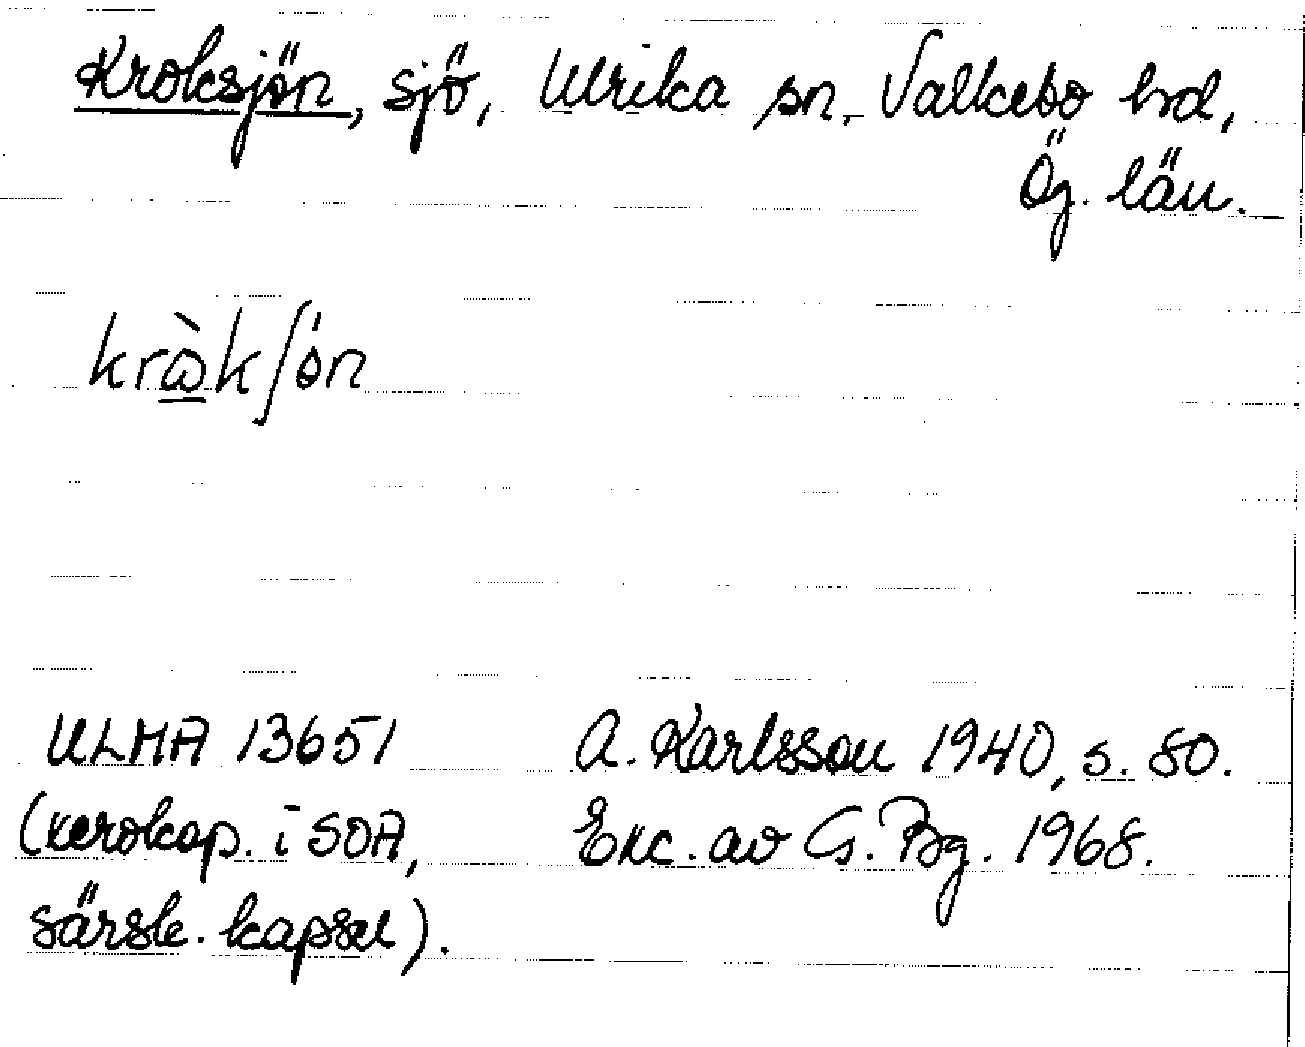 Kroksjön, sjö, Ulrika sn, Valkebo hd,
Ög. län.
krὼkʃön
ULMA 13651 A. Karlsson 1940, s. 80.
(xerokop. i SOA, Exc. av G. Bg. 1968.
särsk. kapsel).